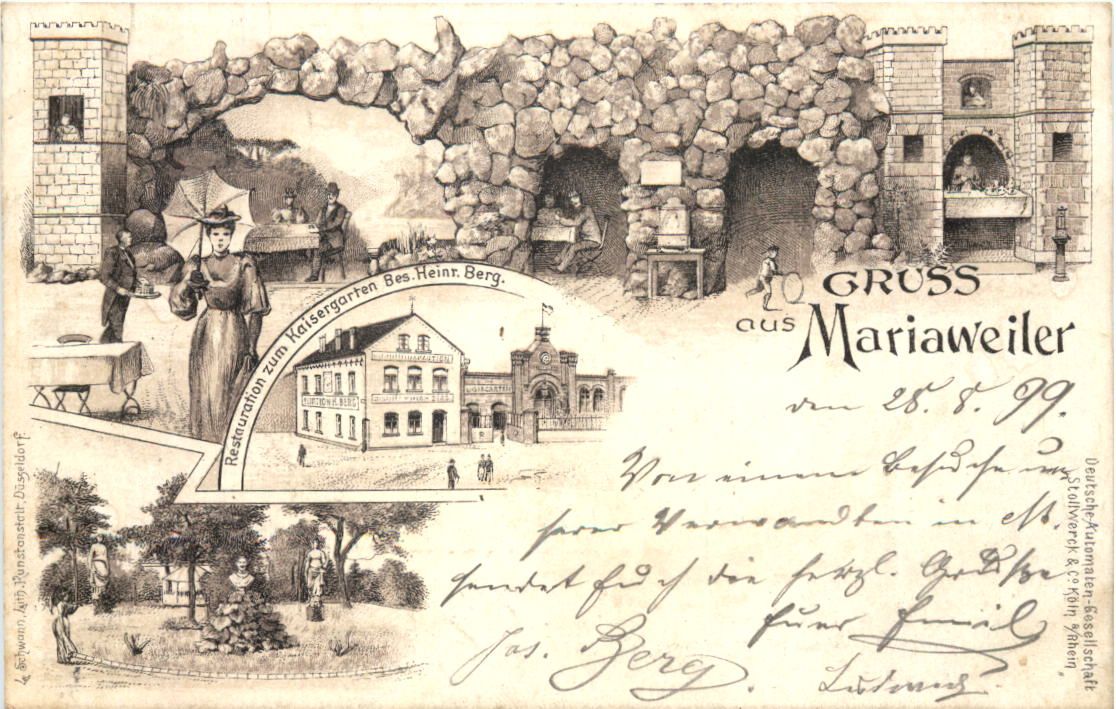 GRUSS
aus Mariaweiler
Restauration zum Kaisergarten Bes. Heinr. Berg.
RESTAURATION
H. BERG
den 28. 8. 99.
Von einem Besuche un-
serer Verwandten in M.
sendet Euch die herzl. Grüße
Euer Emil
Jos. Berg.
Ludwig.
Deutsche-Automaten-Gesellschaft
Stollwerck & Co. Köln a/Rhein
L. Schwann, Lith. Kunstanstalt, Düsseldorf.